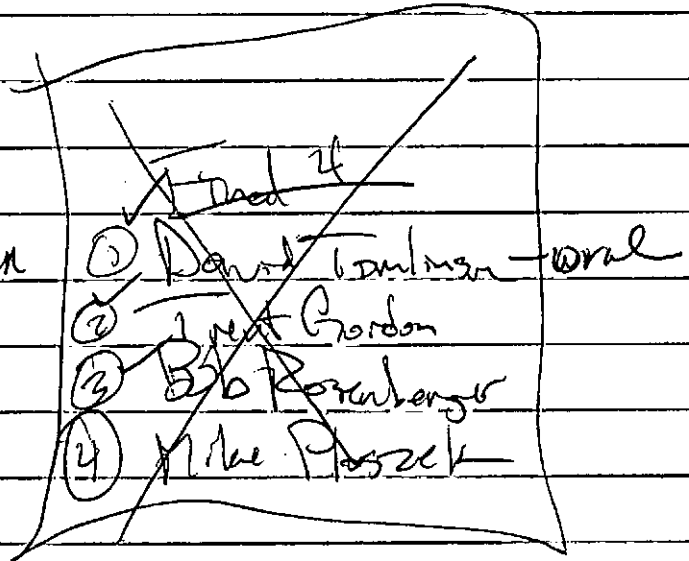 Final 4
① David Tomlinson - oral
② Trent Gordon
③ Bob Rosenberger
④ Mike